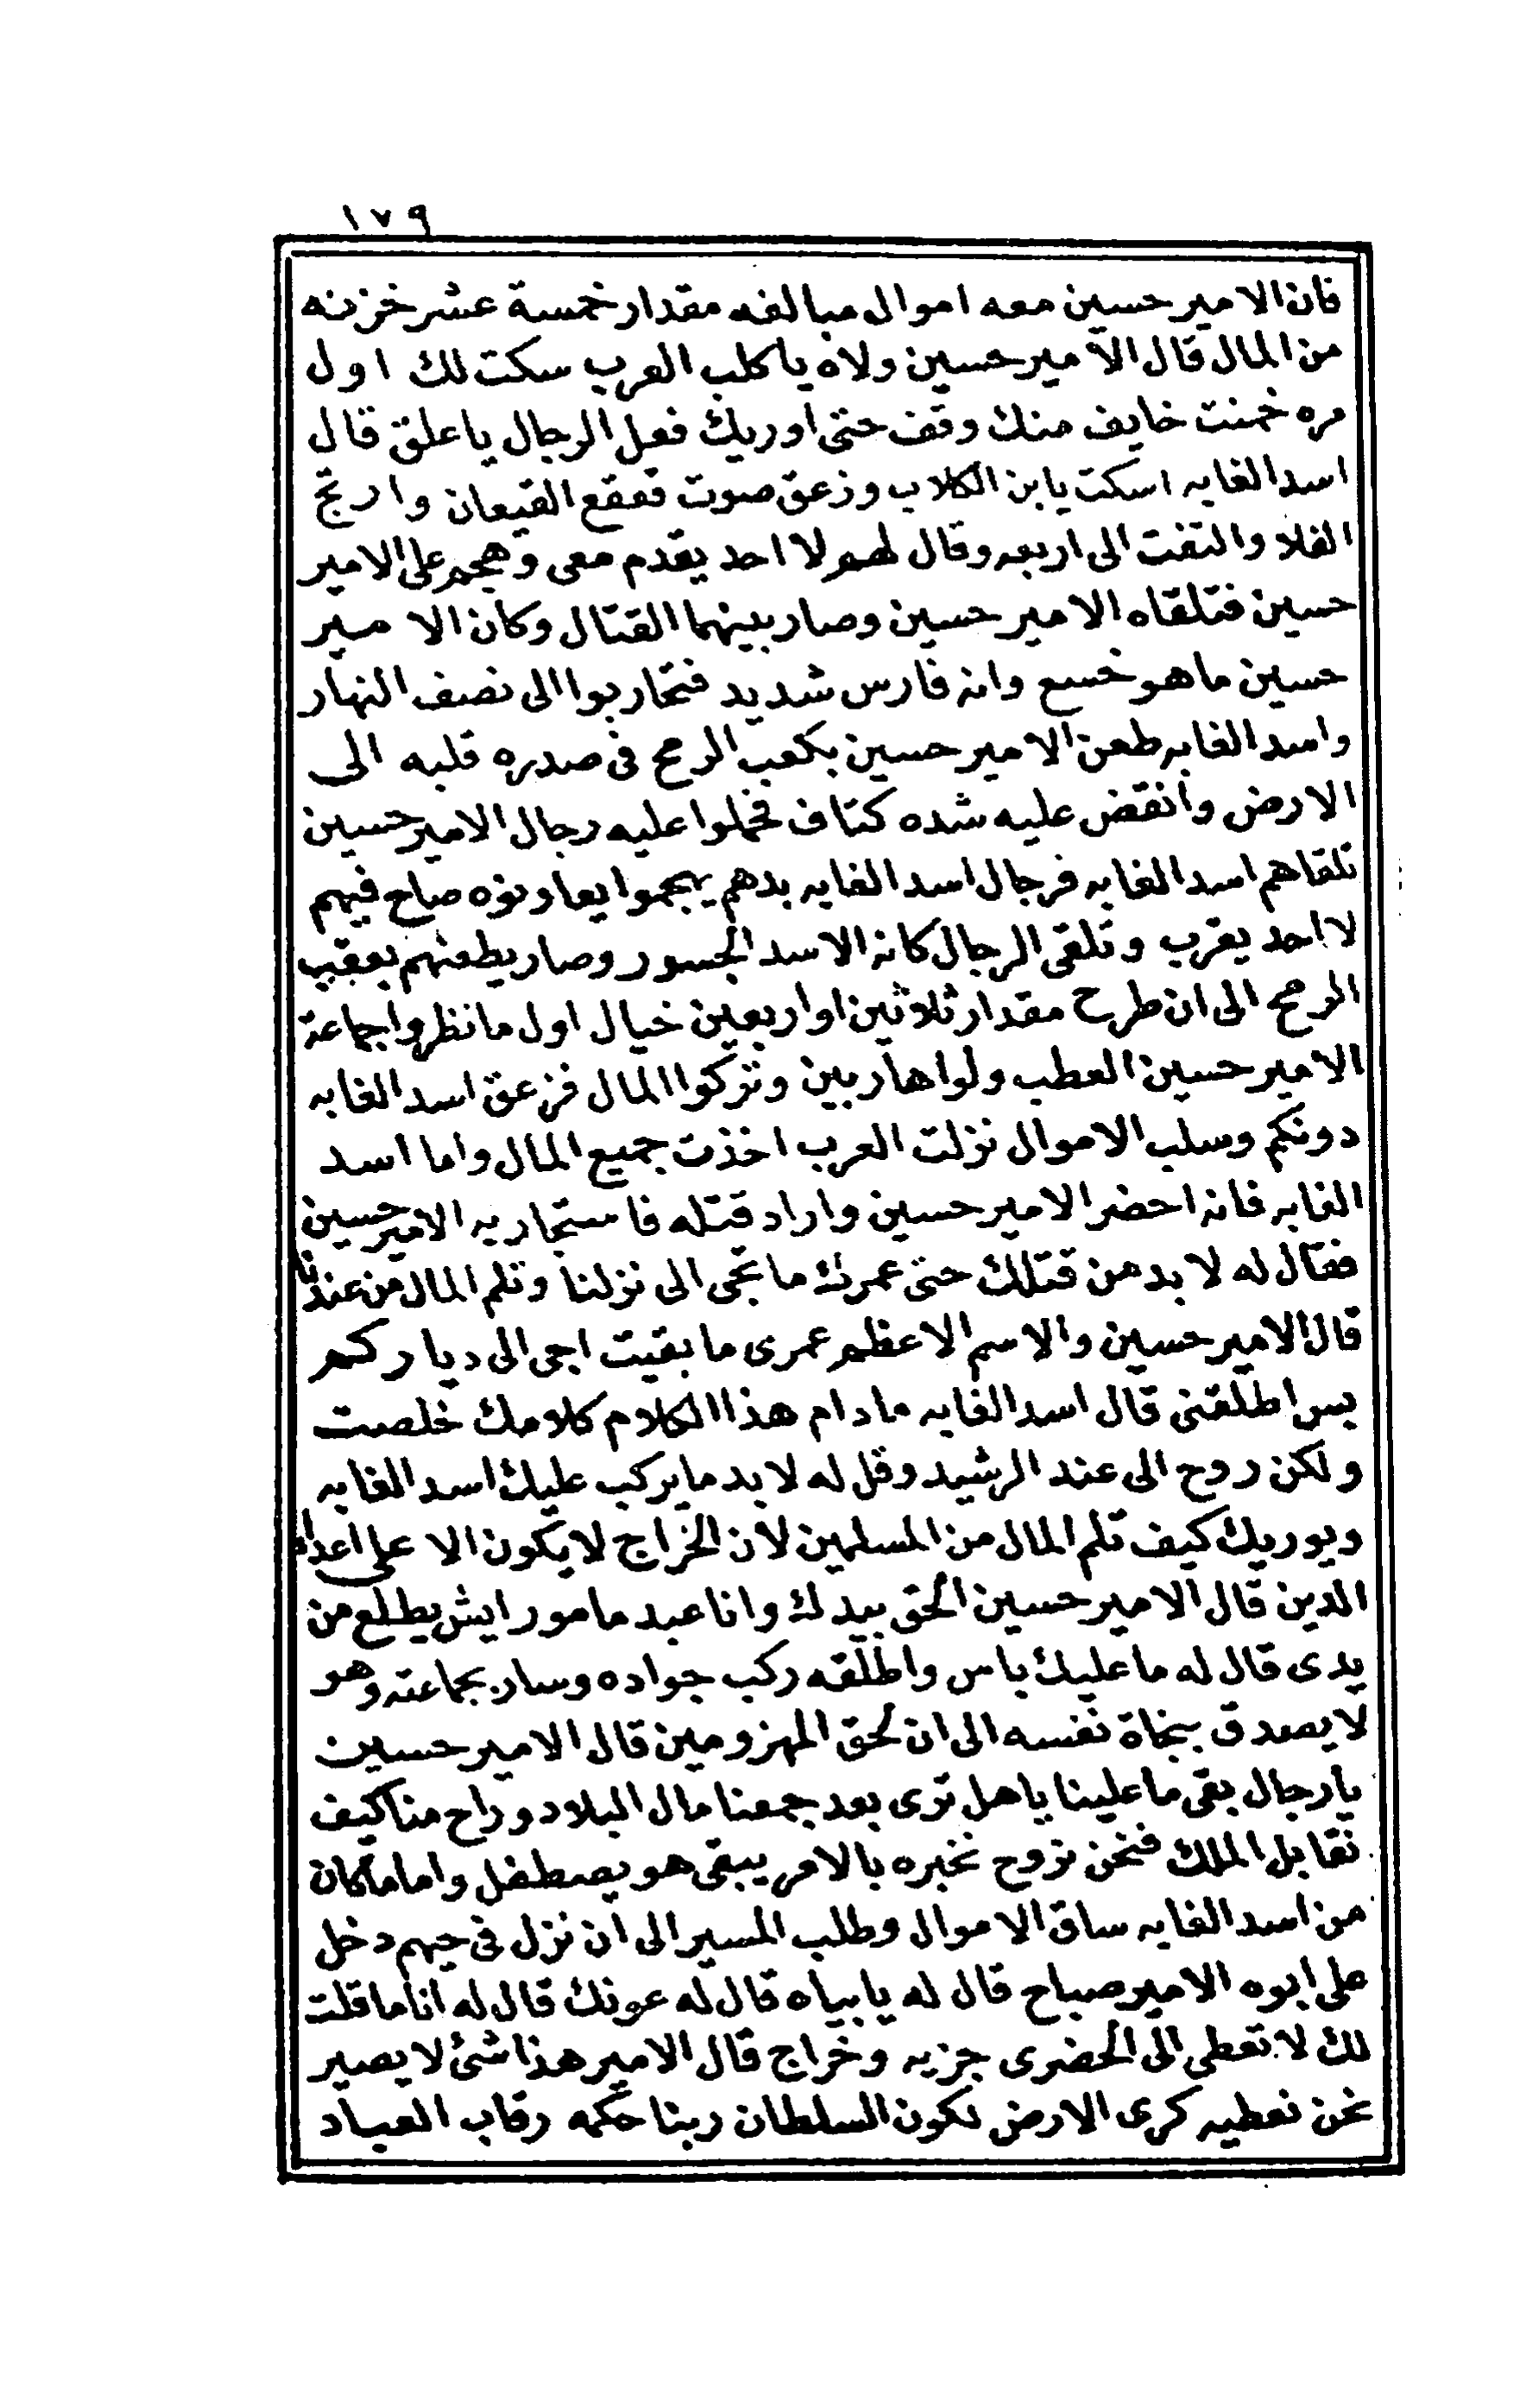 ١٧٩
فان الامير حسين معه اموال مبالغه مقدار خمسة عشر خزنه
من المال قال الامير حسين ولاه يا كلب العرب سكت لك اول
مره خمنت خايف منك وقف حتى اوريك فعل الرجال يا علق قال
اسد الغابه اسكت يابن الكلاب وزعق صوت قعقع القيعان وارتج
الفلا والتفت الى اربعه وقال لهم لا احد يقدم معى وهجم على الامير
حسين فتلقاه الامير حسين وصار بينهما القتال وكان الامير
حسين ما هو خسع وانه فارس شديد فتحاربوا الى نصف النهار
واسد الغابه طعن الامير حسين بكعب الرمح فى صدره قلبه الى
الارض وانقض عليه شده كتاف فحملوا عليه رجال الامير حسين
تلقاهم اسد الغابه فرجال اسد الغابه بدهم يهجموا يعاونوه صاح فيهم
لا احد يقرب وتلقى الرجال كانه الاسد الجسور وصار يطعنهم بعقب
الرمح الى ان طرح مقدار ثلاثين او اربعين خيال اول ما نظروا جماعة
الامير حسين العطب ولوا هاربين وتركوا المال فزعق اسد الغابه
دونكم وسلب الاموال نزلت العرب اخذت جميع المال واما اسد
الغابه فانه احضر الامير حسين واراد قتله فاستجار به الامير حسين
فقال له لا بد من قتلك حتى عمرك ما تجى الى نزلنا وتلم المال من عندنا
قال الامير حسين والاسم الاعظم عمرى ما بقيت اجى الى دياركم
بس اطلقنى قال اسد الغابه ما دام هذا الكلام كلامك خلصت
ولكن روح الى عند الرشيد وقل له لا بد ما يركب عليك اسد الغابه
ويوريك كيف تلم المال من المسلمين لان الخراج لا يكون الا على اعداء
الدين قال الامير حسين الحق بيدك وانا عبد مامور ايش يطلع من
يدى قال له ما عليك باس واطلقه ركب جواده وسار بجماعته وهو
لا يصدق بنجاة نفسه الى ان لحق المهزومين قال الامير حسين
يا رجال بقى ما علينا يا هل ترى بعد جمعنا مال البلاد وراح منا كيف
نقابل الملك فنحن نروح نخبره بالامر يبقى هو يصطفل واما ما كان
من اسد الغابه ساق الاموال وطلب المسير الى ان نزل فى حيهم دخل
على ابوه الامير صباح قال له يا بياه قال له عونك قال له انا ما قلت
لك لا تعطى الى الحضرى جزيه وخراج قال الامير هذا شئ لا يصير
نحن نعطيه كرى الارض نكون السلطان ربنا حكمه رقاب العباد